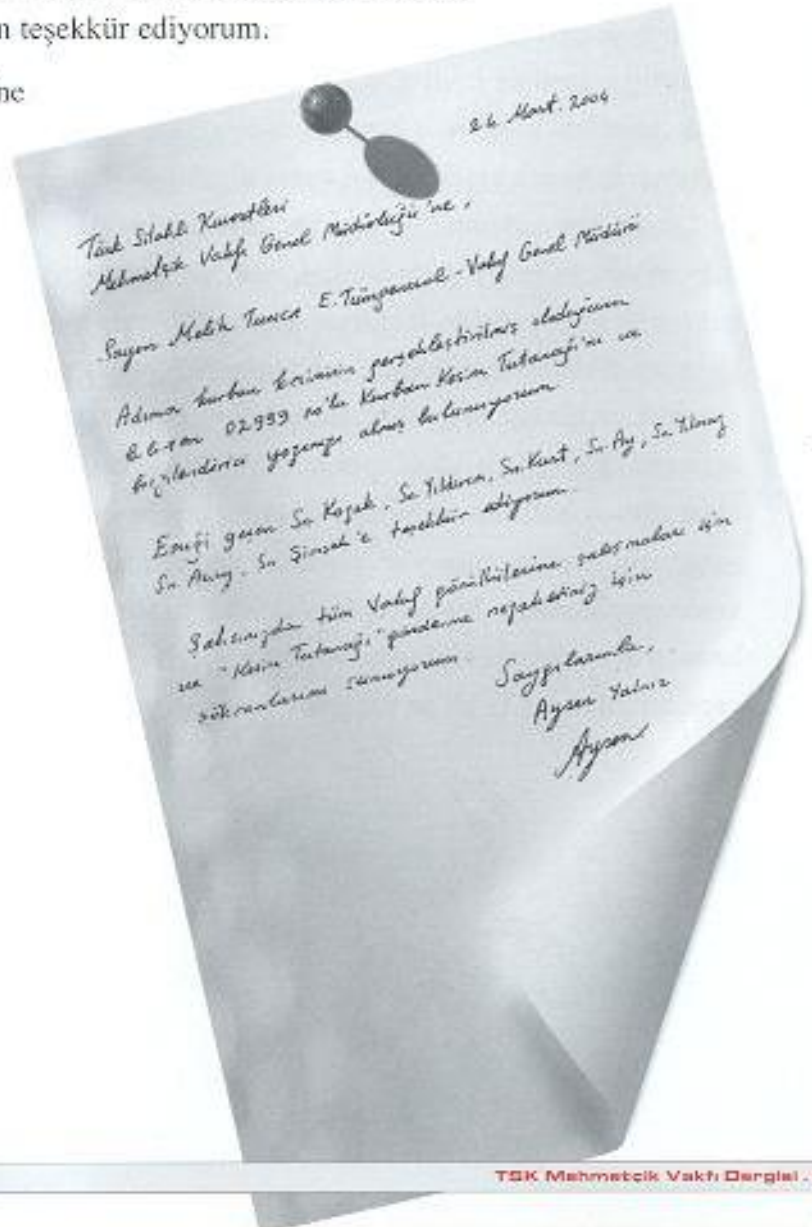 n teşekkür ediyorum.
ne
26 Mart 2004
Türk Silahlı Kuvvetleri
Mehmetçik Vakfı Genel Müdürlüğü'ne,
Sayın Melih Tunca E. Tümgeneral - Vakıf Genel Müdürü
Adıma kurban kesiminin gerçekleştirilmiş olduğunu
02999 no'lu Kurban Kesim Tutanağı'nı ve
bilgilendirici yazınızı almış bulunuyorum
Emeği geçen Sn. Koçak, Sn. Yıldırım, Sn. Kurt, Sn. Ay, Sn. Yılmaz
Sn. Sn. Şimşek'e teşekkür ediyorum.
Şahsınızda tüm Vakıf gönüllülerine çalışmaları için
ve "Kesim Tutanağı" gönderme nezaketiniz için
şükranlarımı sunuyorum.
Saygılarımla,
Aysen Yalnız
Aysen
TSK Mehmetçik Vakfı Dergisi.